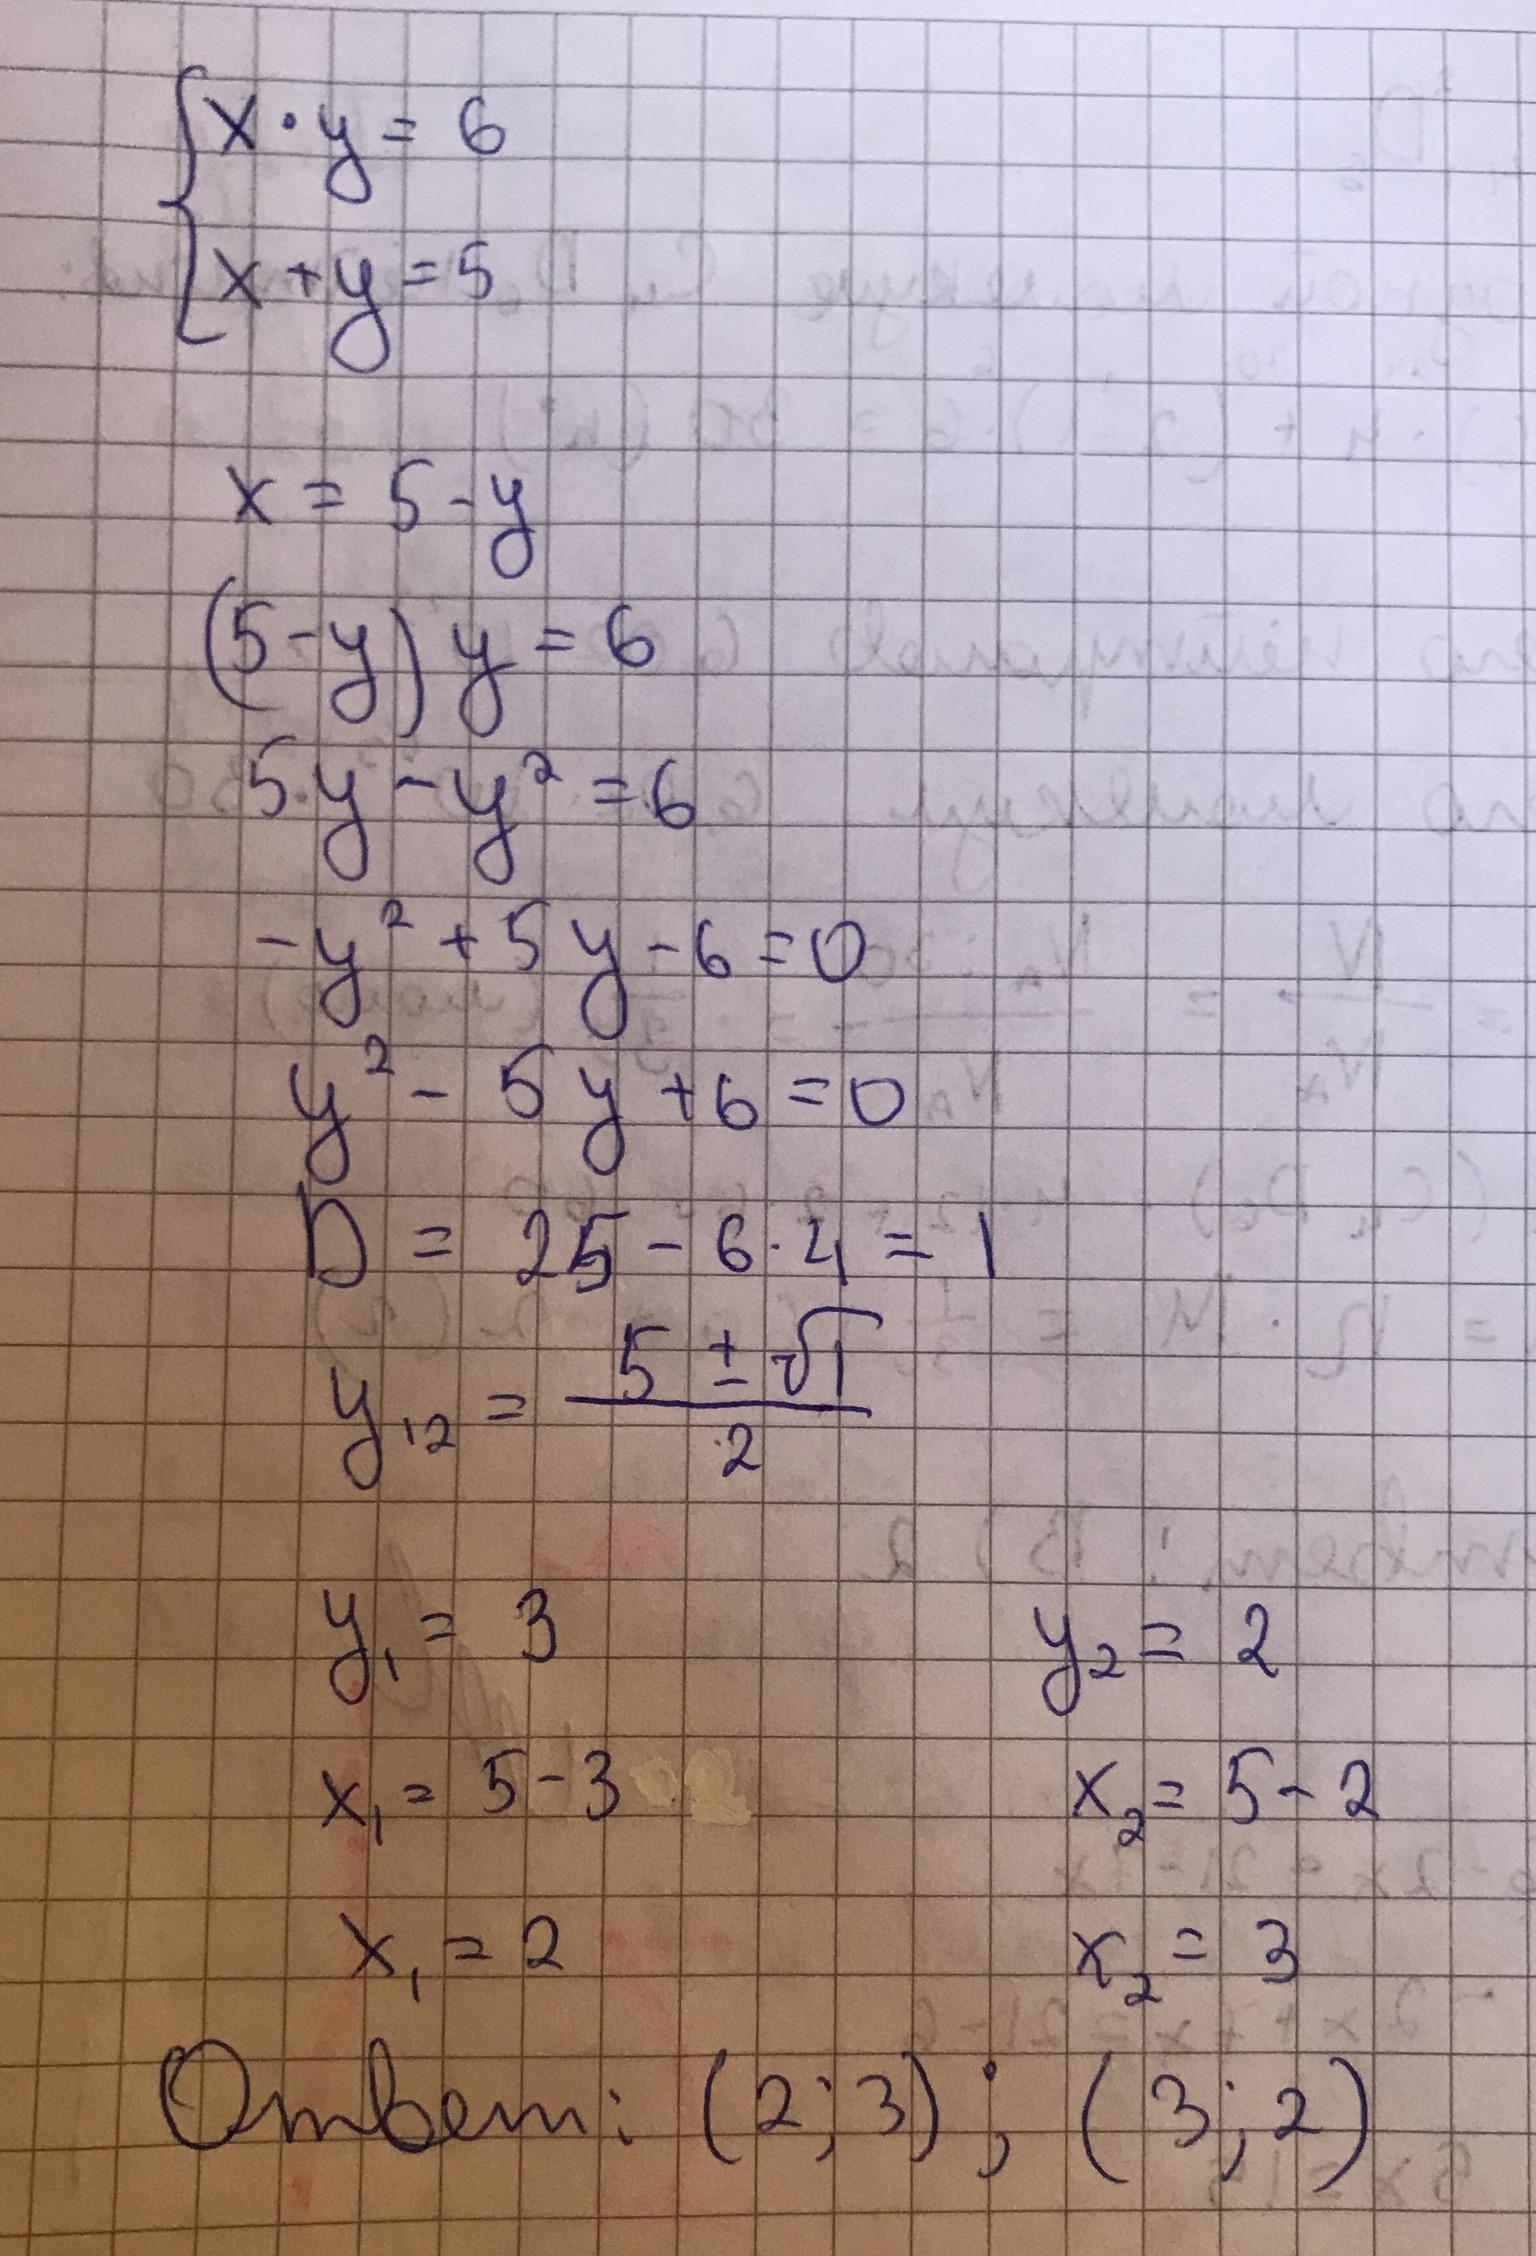 { x · y = 6
x + y = 5
x = 5 - y
(5 - y) y = 6
5y - y² = 6
-y² + 5y - 6 = 0
y² - 5y + 6 = 0
D = 25 - 6 · 4 = 1
y₁₂ = (5 ± √1) / 2
y₁ = 3 y₂ = 2
x₁ = 5 - 3 x₂ = 5 - 2
x₁ = 2 x₂ = 3
Ответ: (2; 3) ; (3; 2)